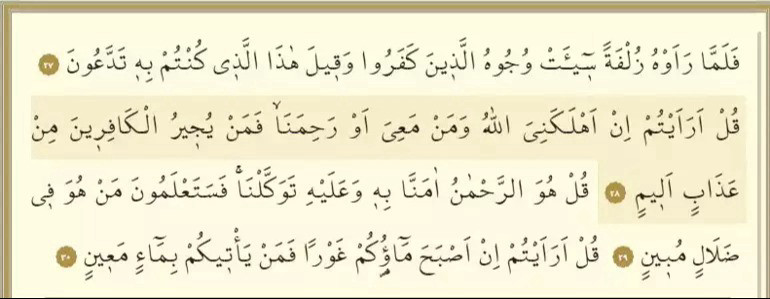 فَلَمَّا رَاَوْهُ زُلْفَةً سٓيـَٔتْ وُجُوهُ الَّذ۪ينَ كَفَرُوا وَق۪يلَ هٰذَا الَّذ۪ي كُنْتُمْ بِه۪ تَدَّعُونَ ﴿٢٧﴾
قُلْ اَرَاَيْتُمْ اِنْ اَهْلَكَنِيَ اللّٰهُ وَمَنْ مَعِيَ اَوْ رَحِمَنَاۙ فَمَنْ يُج۪يرُ الْكَافِر۪ينَ مِنْ
عَذَابٍ اَل۪يمٍ ﴿٢٨﴾ قُلْ هُوَ الرَّحْمٰنُ اٰمَنَّا بِه۪ وَعَلَيْهِ تَوَكَّلْنَاۚ فَسَتَعْلَمُونَ مَنْ هُوَ ف۪ي
ضَلَالٍ مُب۪ينٍ ﴿٢٩﴾ قُلْ اَرَاَيْتُمْ اِنْ اَصْبَحَ مَٓاؤُ۬كُمْ غَوْرًا فَمَنْ يَأْت۪يكُمْ بِمَٓاءٍ مَع۪ينٍ ﴿٣٠﴾